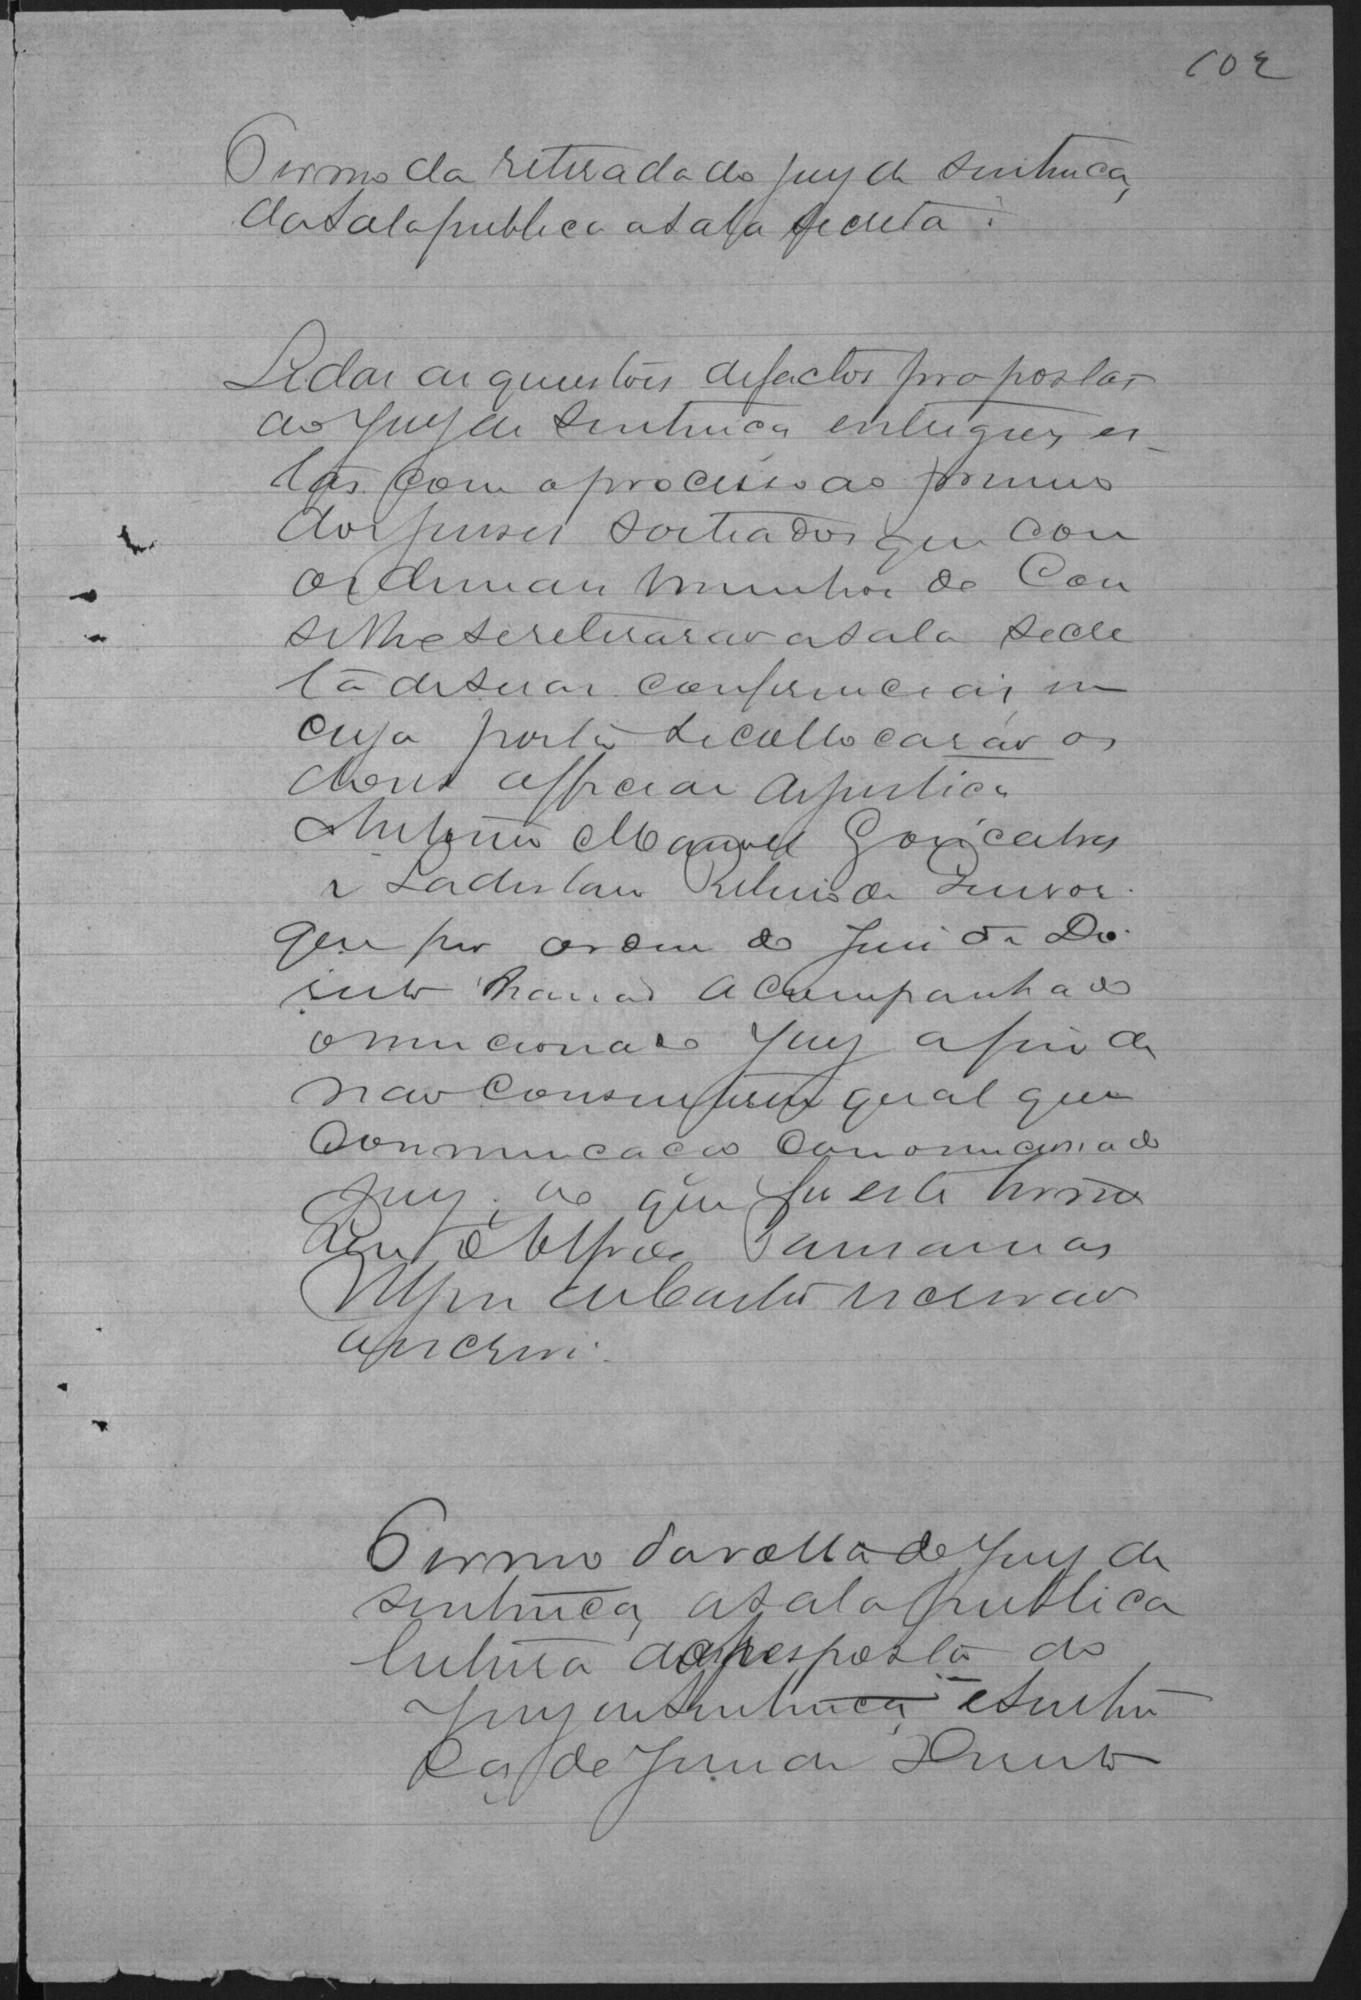 102
Termo da retirada do jury de sentença,
da sala publica a sala secreta.
Lidas as questões de factos propostas
ao jury de sentença entreguei es
tas com o processo ao primeiro
dos juises sorteados que com
os demais membros do Con
selho se retirarão a sala secre
ta de suas conferencias, em
cuja porta se collocarão os
dous officiaes de justiça
Antonio Manuel Gonçalves
e Ladislau Ribeiro de
que por ordem do Juis de Di
reito havia acompanhado
o mencionado jury a fim de
não consentirem qual quer
Communicação com o mencionado
jury, do que fis este termo
Eu Alfredo
escrivão
escrevi.
Termo da volta do jury de
sentença, a sala publica
leitura da resposta do
jury de sentença e senten
ça do Juis de Direito